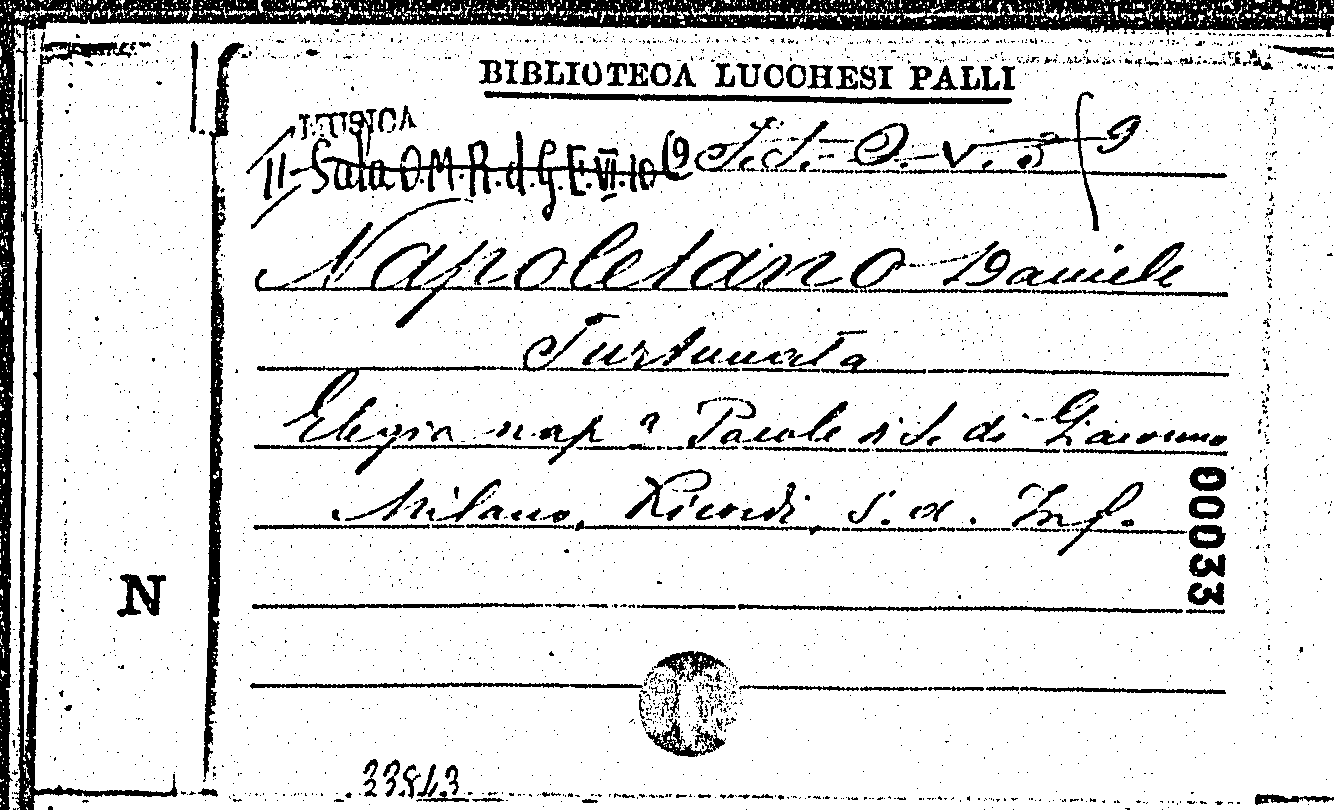 BIBLIOTECA LUCCHESI PALLI
MUSICA
II Sala O.M.R.d.G.E.VI.10 (9
Napoletano Daniele
Furtunata
Elegia nap.a Parole di S. di Giacomo
Milano, Ricordi, s. d. Inf.
00033
N
33843